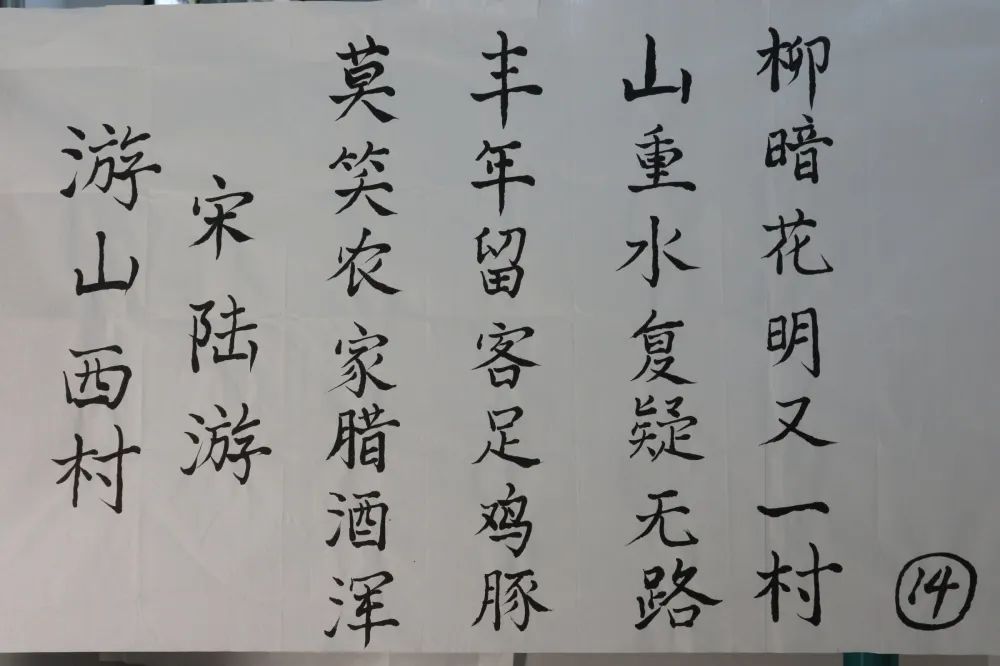 游山西村
宋陆游
莫笑农家腊酒浑
丰年留客足鸡豚
山重水复疑无路
柳暗花明又一村
14